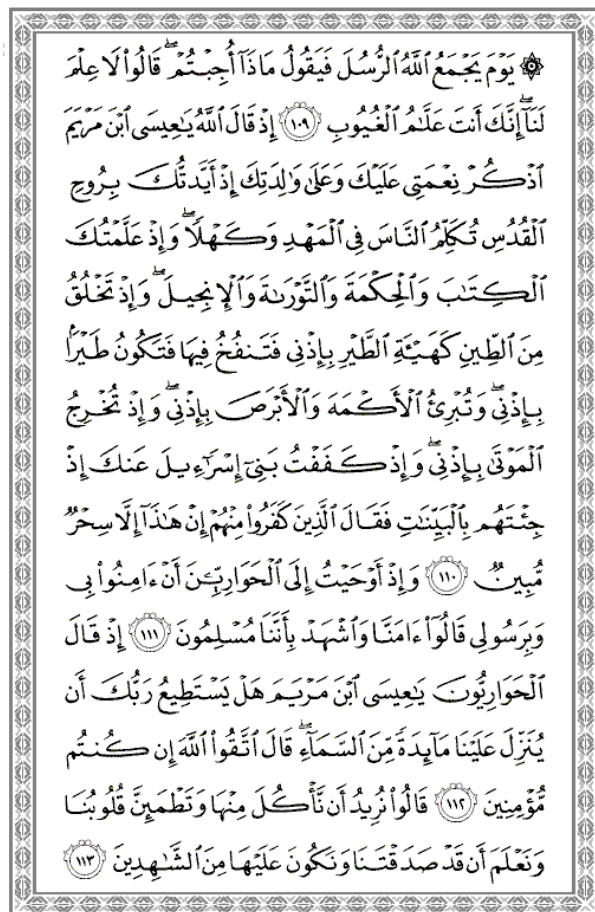 ۞ يَوْمَ يَجْمَعُ ٱللَّهُ ٱلرُّسُلَ فَيَقُولُ مَاذَآ أُجِبْتُمْ ۖ قَالُوا۟ لَا عِلْمَ
لَنَآ ۖ إِنَّكَ أَنتَ عَلَّٰمُ ٱلْغُيُوبِ ١٠٩ إِذْ قَالَ ٱللَّهُ يَٰعِيسَى ٱبْنَ مَرْيَمَ
ٱذْكُرْ نِعْمَتِى عَلَيْكَ وَعَلَىٰ وَٰلِدَتِكَ إِذْ أَيَّدتُّكَ بِرُوحِ
ٱلْقُدُسِ تُكَلِّمُ ٱلنَّاسَ فِى ٱلْمَهْدِ وَكَهْلًا ۖ وَإِذْ عَلَّمْتُكَ
ٱلْكِتَٰبَ وَٱلْحِكْمَةَ وَٱلتَّوْرَىٰةَ وَٱلْإِنجِيلَ ۖ وَإِذْ تَخْلُقُ
مِنَ ٱلطِّينِ كَهَيْـَٔةِ ٱلطَّيْرِ بِإِذْنِى فَتَنفُخُ فِيهَا فَتَكُونُ طَيْرًۢا
بِإِذْنِى ۖ وَتُبْرِئُ ٱلْأَكْمَهَ وَٱلْأَبْرَصَ بِإِذْنِى ۖ وَإِذْ تُخْرِجُ
ٱلْمَوْتَىٰ بِإِذْنِى ۖ وَإِذْ كَفَفْتُ بَنِىٓ إِسْرَٰٓءِيلَ عَنكَ إِذْ
جِئْتَهُم بِٱلْبَيِّنَٰتِ فَقَالَ ٱلَّذِينَ كَفَرُوا۟ مِنْهُمْ إِنْ هَٰذَآ إِلَّا سِحْرٌ
مُّبِينٌ ١١٠ وَإِذْ أَوْحَيْتُ إِلَى ٱلْحَوَارِيِّـۧنَ أَنْ ءَامِنُوا۟ بِى
وَبِرَسُولِى قَالُوٓا۟ ءَامَنَّا وَٱشْهَدْ بِأَنَّنَا مُسْلِمُونَ ١١١ إِذْ قَالَ
ٱلْحَوَارِيُّونَ يَٰعِيسَى ٱبْنَ مَرْيَمَ هَلْ يَسْتَطِيعُ رَبُّكَ أَن
يُنَزِّلَ عَلَيْنَا مَآئِدَةً مِّنَ ٱلسَّمَآءِ ۖ قَالَ ٱتَّقُوا۟ ٱللَّهَ إِن كُنتُم
مُّؤْمِنِينَ ١١٢ قَالُوا۟ نُرِيدُ أَن نَّأْكُلَ مِنْهَا وَتَطْمَئِنَّ قُلُوبُنَا
وَنَعْلَمَ أَن قَدْ صَدَقْتَنَا وَنَكُونَ عَلَيْهَا مِنَ ٱلشَّٰهِدِينَ ١١٣